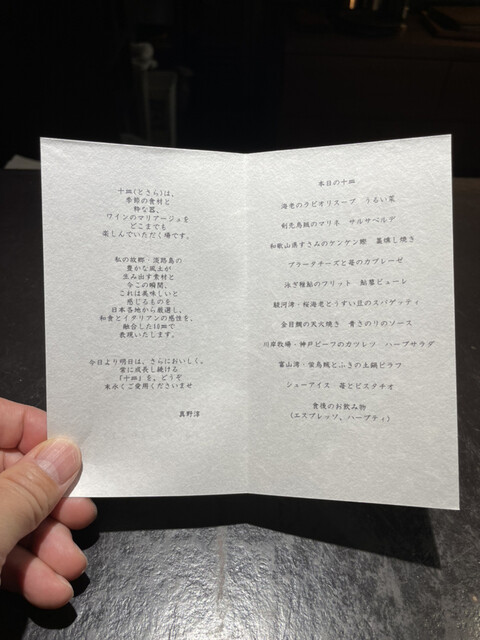 十皿(とさら)は、
季節の食材と
粋な器、
ワインのマリアージュを
どこまでも
楽しんでいただく場です。
私の故郷 淡路島の
豊かな風土が
生み出す素材と
今この瞬間、
これは美味しいと
感じるものを
日本各地から厳選し、
和食とイタリアンの感性を、
融合した10皿で
表現いたします。
今日より明日は、さらにおいしく。
常に成長し続ける
「十皿」を、どうぞ
末永くご愛顧くださいませ
真野淳
本日の十皿
海老のラビオリスープ うるい菜
剣先烏賊のマリネ サルサベルデ
和歌山県すさみのケンケン鰹 藁燻し焼き
ブラータチーズと苺のカプレーゼ
泳ぎ稚鮎のフリット 鮎蓼ピューレ
駿河湾・桜海老とうすい豆のスパゲッティ
金目鯛の天火焼き 青さのりのソース
川岸牧場・神戸ビーフのカツレツ ハーブサラダ
富山湾・蛍烏賊とふきの土鍋ピラフ
シューアイス 苺とピスタチオ
食後のお飲み物
(エスプレッソ、ハーブティ)